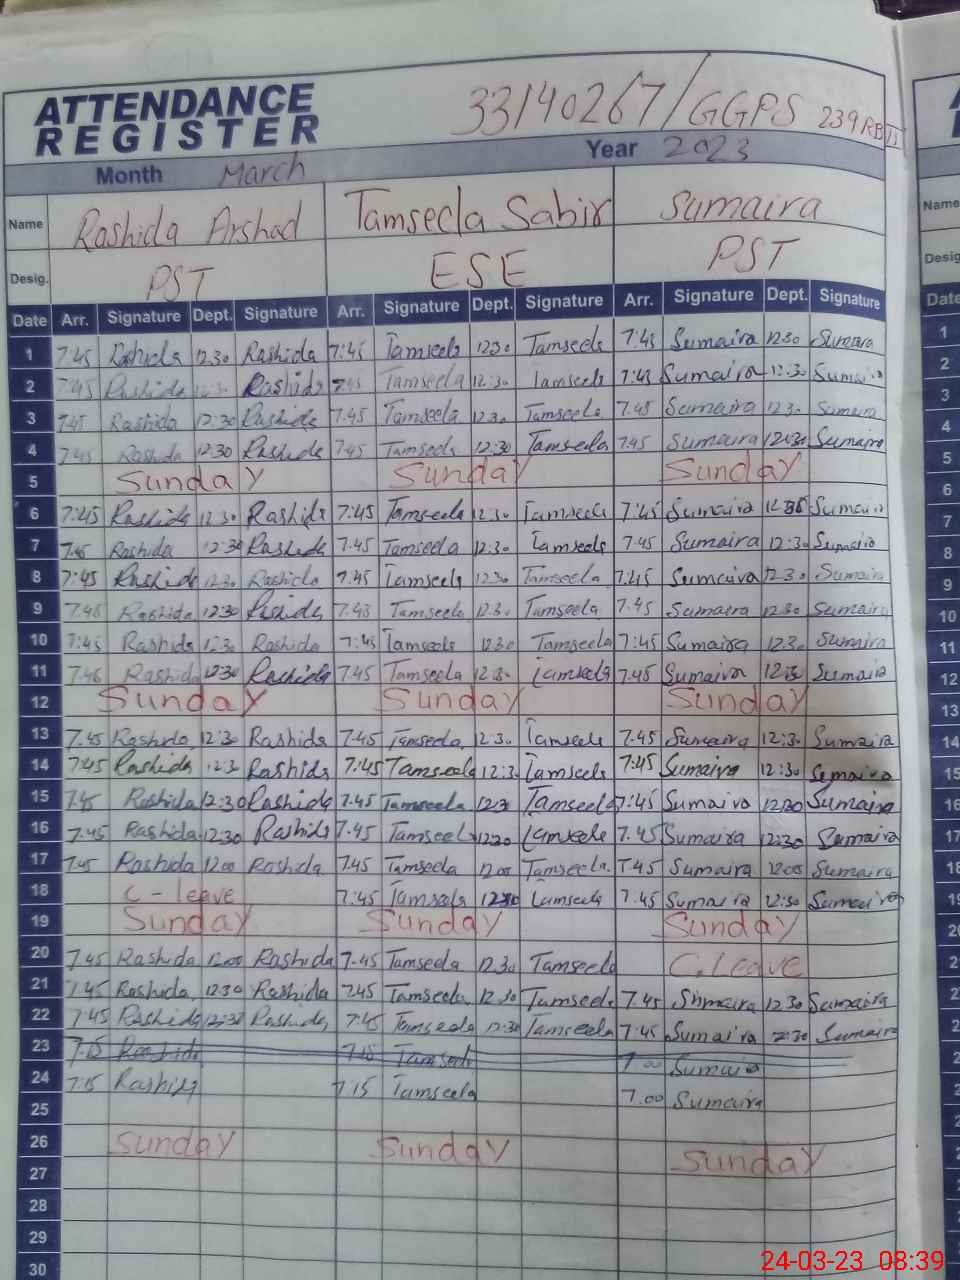 ATTENDANCE
REGISTER
33140267/GGPS 239RB
Month March Year 2023
Name Rashida Arshad Tamseela Sabir Sumaira
Desig. PST ESE PST
Date Arr. Signature Dept. Signature Arr. Signature Dept. Signature Arr. Signature Dept. Signature
1 7.45 Rashida 12.30 Rashida 7:45 Tamseela 12.30 Tamseela 7:45 Sumaira 12.30 Sumaira
2 7:45 Rashida 12:30 Rashida 7:45 Tamseela 12:30 Tamseela 7:45 Sumaira 12:30 Sumaira
3 7.45 Rashida 12:30 Rashida 7.45 Tamseela 12.30 Tamseela 7.45 Sumaira 12.30 Sumaira
4 7.45 Rashida 12.30 Rashida 7.45 Tamseela 12:30 Tamseela 7.45 Sumaira 12:30 Sumaira
5 Sunday Sunday Sunday
6 7:45 Rashida 12.30 Rashida 7:45 Tamseela 12.30 Tamseela 7:45 Sumaira Sumaira
7 7.45 Rashida 12:30 Rashida 7.45 Tamseela 12:30 Tamseela 7.45 Sumaira 12:30 Sumaira
8 7:45 Rashida 12.30 Rashida 7.45 Tamseela 12.30 Tamseela 7:45 Sumaira 12.30 Sumaira
9 7.45 Rashida 12:30 Rashida 7.45 Tamseela 12.30 Tamseela 7.45 Sumaira 12.30 Sumaira
10 7:45 Rashida 12.30 Rashida 7:45 Tamseela 12.30 Tamseela 7:45 Sumaira 12.30 Sumaira
11 7.45 Rashida 12:30 Rashida 7.45 Tamseela 12.30 Tamseela 7.45 Sumaira 12:30 Sumaira
12 Sunday Sunday Sunday
13 7.45 Rashida 12:30 Rashida 7.45 Tamseela 12.30 Tamseela 7.45 Sumaira 12:30 Sumaira
14 7:45 Rashida 12:30 Rashida 7:45 Tamseela 12:30 Tamseela 7:45 Sumaira 12:30 Sumaira
15 7.45 Rashida 12:30 Rashida 7.45 Tamseela 12.30 Tamseela 7:45 Sumaira 12:30 Sumaira
16 7.45 Rashida 12:30 Rashida 7.45 Tamseela 12:30 Tamseela 7.45 Sumaira 12:30 Sumaira
17 7.45 Rashida 12.00 Rashida 7.45 Tamseela 12.00 Tamseela 7.45 Sumaira 12.00 Sumaira
18 C - leave 7:45 Tamseela 12:30 Tamseela 7.45 Sumaira 12:30 Sumaira
19 Sunday Sunday Sunday
20 7.45 Rashida 12.00 Rashida 7.45 Tamseela 12.30 Tamseela C.Leave
21 7.45 Rashida 12:30 Rashida 7.45 Tamseela 12.30 Tamseela 7.45 Sumaira 12.30 Sumaira
22 7.45 Rashida 12:30 Rashida 7:45 Tamseela 12:30 Tamseela 7.45 Sumaira 12:30 Sumaira
23 7.15 Rashida 7.15 Tamseela 7.00 Sumaira
24 7:15 Rashida 7 15 Tamseela 7.00 Sumaira
25
26 Sunday Sunday Sunday
27
28
29
30
Name
Desig
Date
1
2
3
4
5
6
7
8
9
10
11
12
13
14
15
16
17
24-03-23 08:39